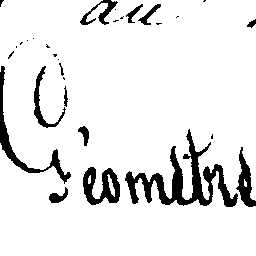 au
Géomètre